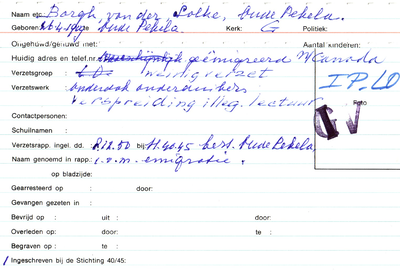 Naam etc. Borgh, van der Folke, Oude Pekela.
Geboren: te Oude Pekela. Kerk: G Politiek:
Ongehuwd/gehuwd met: Aantal kinderen:
Huidig adres en telef.nr. geëmigreerd n/Canada
Verzetsgroep :
Verzetswerk : onderzoek onderduikers
verspreiding illeg. lectuur
I P. LD
Foto
G V
Contactpersonen:
Schuilnaam :
Verzetsrapp. ingel. dd. bij: best. Oude Pekela
Naam genoemd in rapp.: i.v.m. emigratie.
op bladzijde:
Gearresteerd op : door:
Gevangen gezeten in :
Bevrijd op : uit : door:
Overleden op : door: te :
Begraven op : te :
Ingeschreven bij de Stichting 40/45: